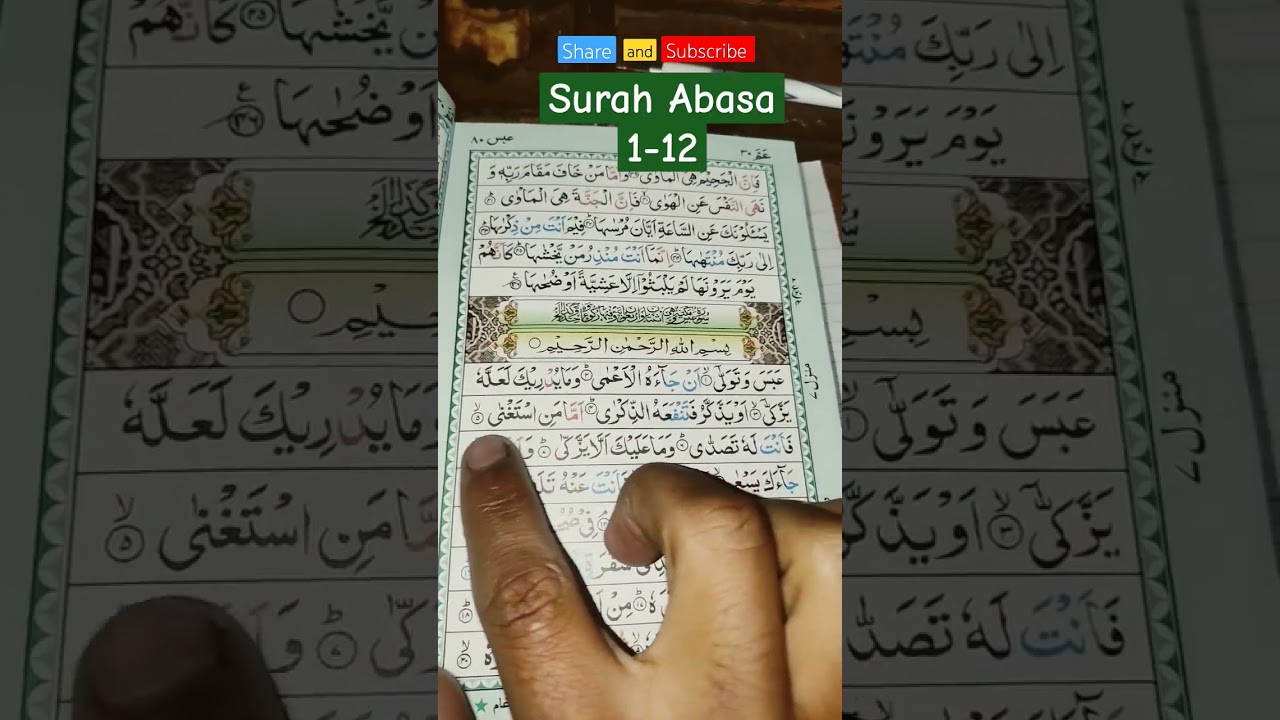 Share and Subscribe
Surah Abasa
1-12
عبس ٨٠
عَمَّ ٣٠
فَاِنَّ الْجَحِيْمَ هِيَ الْمَاْوٰى ۞ وَاَمَّا مَنْ خَافَ مَقَامَ رَبِّهٖ وَ
نَهَى النَّفْسَ عَنِ الْهَوٰى ۞ فَاِنَّ الْجَنَّةَ هِيَ الْمَاْوٰى ۞
يَسْـَٔلُوْنَكَ عَنِ السَّاعَةِ اَيَّانَ مُرْسٰىهَا ۞ فِيْمَ اَنْتَ مِنْ ذِكْرٰىهَا ۞
اِلٰى رَبِّكَ مُنْتَهٰىهَا ۞ اِنَّمَا اَنْتَ مُنْذِرُ مَنْ يَّخْشٰىهَا ۞ كَاَنَّهُمْ
يَوْمَ يَرَوْنَهَا لَمْ يَلْبَثُوْٓا اِلَّا عَشِيَّةً اَوْ ضُحٰىهَا ۞
بِسْمِ اللّٰهِ الرَّحْمٰنِ الرَّحِيْمِ ۞
عَبَسَ وَتَوَلّٰىٓ ۞ اَنْ جَآءَهُ الْاَعْمٰى ۞ وَمَا يُدْرِيْكَ لَعَلَّهٗ
يَزَّكّٰىٓ ۞ اَوْ يَذَّكَّرُ فَتَنْفَعَهُ الذِّكْرٰى ۞ اَمَّا مَنِ اسْتَغْنٰى ۞
فَاَنْتَ لَهٗ تَصَدّٰى ۞ وَمَا عَلَيْكَ اَلَّا يَزَّكّٰى ۞
جَآءَكَ يَسْعٰى ۞ فَاَنْتَ عَنْهُ
منزل ٧